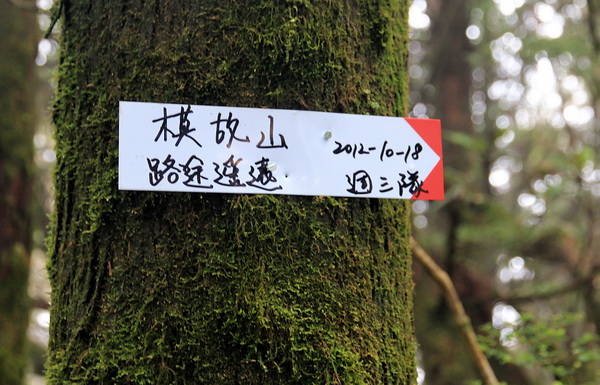 模故山
路途遙遠.
2012-10-18
週三隊